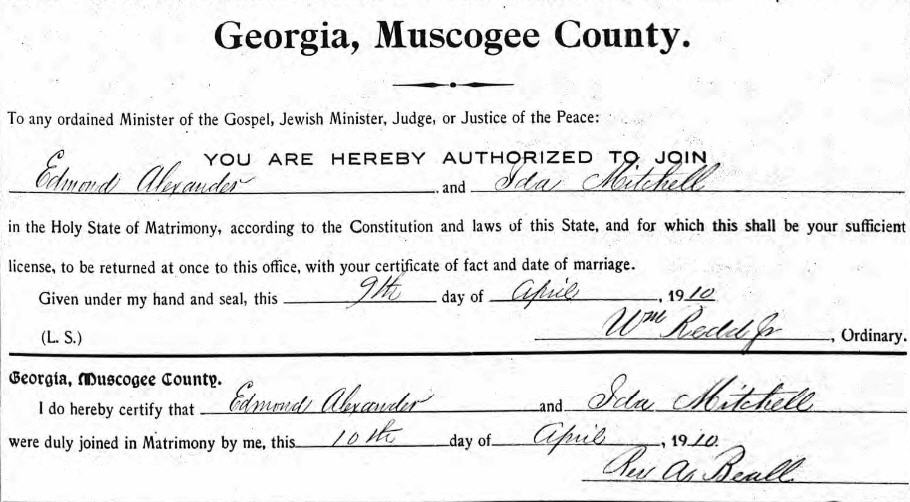 Georgia, Muscogee County.
To any ordained Minister of the Gospel, Jewish Minister, Judge, or Justice of the Peace:
YOU ARE HEREBY AUTHORIZED TO JOIN
Edmond Alexander and Ida Mitchell
in the Holy State of Matrimony, according to the Constitution and laws of this State, and for which this shall be your sufficient
license, to be returned at once to this office, with your certificate of fact and date of marriage.
Given under my hand and seal, this 9th day of April, 1910
(L. S.) Wm Redd Jr, Ordinary.
Georgia, Muscogee County.
I do hereby certify that Edmond Alexander and Ida Mitchell
were duly joined in Matrimony by me, this 10th day of April, 1910.
Rev Beall